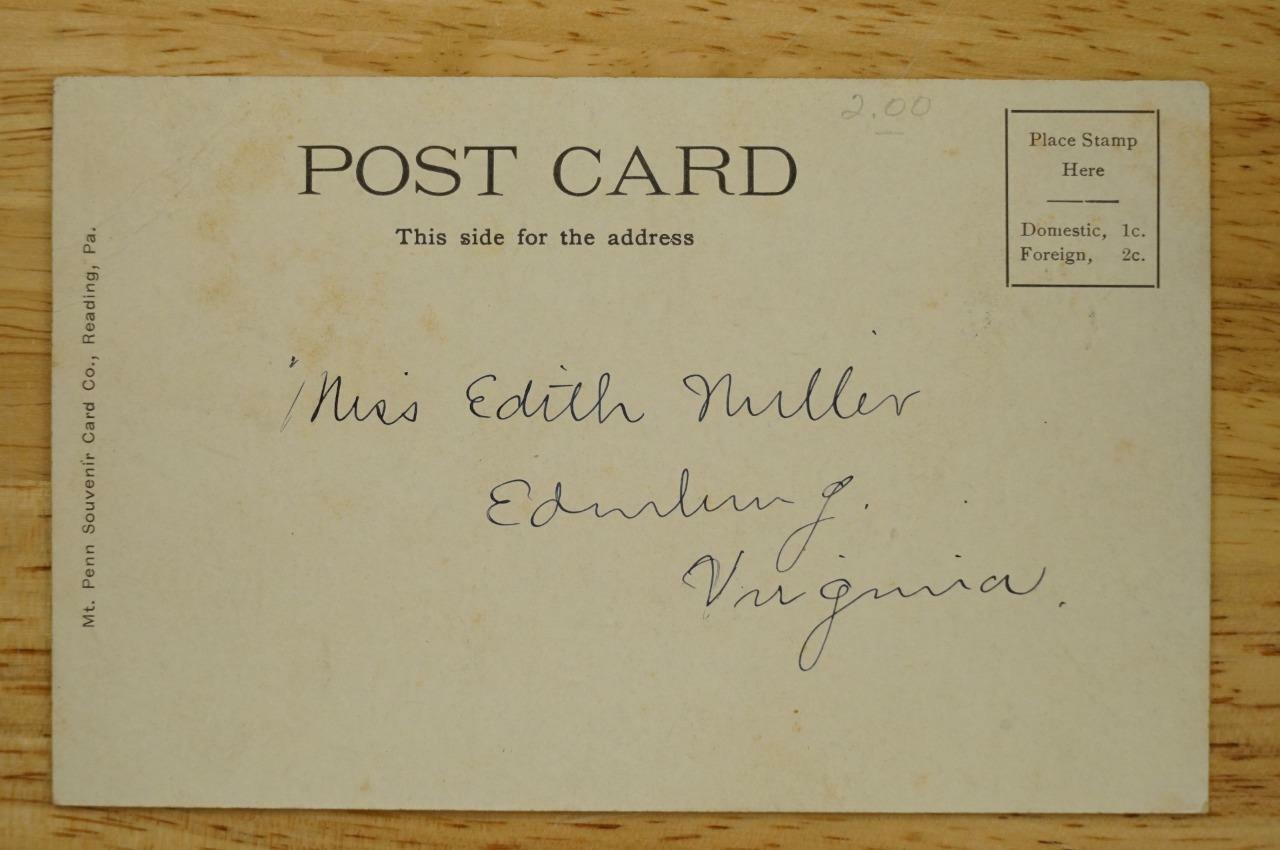 2.00
POST CARD
This side for the address
Place Stamp
Here
Domestic, 1c.
Foreign, 2c.
Mt. Penn Souvenir Card Co., Reading, Pa.
Miss Edith Miller
Edinburg.
Virginia.